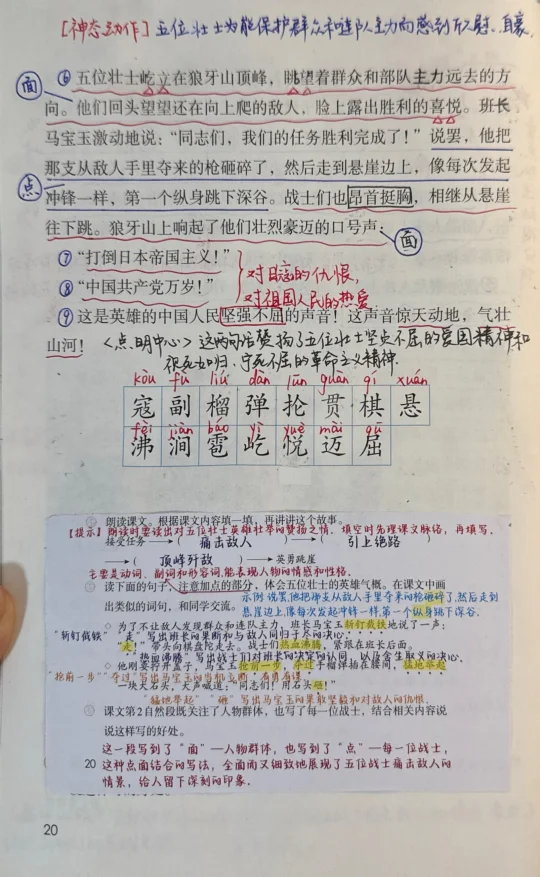 [神态动作] 五位壮士为能保护群众和连队主力而感到欣慰、自豪
面
⑥五位壮士屹立在狼牙山顶峰，眺望着群众和部队主力远去的方
向。他们回头望望还在向上爬的敌人，脸上露出胜利的喜悦。班长
马宝玉激动地说：“同志们，我们的任务胜利完成了！”说罢，他把
那支从敌人手里夺来的枪砸碎了，然后走到悬崖边上，像每次发起
点
冲锋一样，第一个纵身跳下深谷。战士们也昂首挺胸，相继从悬崖
往下跳。狼牙山上响起了他们壮烈豪迈的口号声：
面
⑦“打倒日本帝国主义！”
对日寇的仇恨，
⑧“中国共产党万岁！”
对祖国人民的热爱
⑨这是英雄的中国人民坚强不屈的声音！这声音惊天动地，气壮
山河！
<点明中心> 这两句话赞扬了五位壮士坚贞不屈的爱国精神和
视死如归、宁死不屈的革命主义精神.
kòu fù liú dàn lūn guàn qí xuán
寇 副 榴 弹 抡 贯 棋 悬
fèi jiàn báo yì yuè mài qū
沸 涧 雹 屹 悦 迈 屈
朗读课文。根据课文内容填一填，再讲讲这个故事。
【提示】朗读时要读出对五位壮士英雄壮举的赞扬之情，填空时先理课文脉络，再填写.
接受任务→（ 痛击敌人 ）→（ 引上绝路 ）
→（ 顶峰歼敌 ）→英勇跳崖
主要是动词、副词和形容词，能表现人物的情感和性格.
读下面的句子，注意加点的部分，体会五位壮士的英雄气概。在课文中画
出类似的词句，和同学交流。
示例：说罢，他把那支从敌人手里夺来的枪砸碎了，然后走到
悬崖边上，像每次发起冲锋一样，第一个纵身跳下深谷.
◇ 为了不让敌人发现群众和连队主力，班长马宝玉斩钉截铁地说了一声：
“斩钉截铁”“走”写出班长的果断和与敌人同归于尽的决心.
“走！”带头向棋盘陀走去。战士们热血沸腾，紧跟在班长后面。
“热血沸腾”写出战士们对班长的决定的认同，以及舍生取义的决心.
◇ 他刚要拧开盖子，马宝玉抢前一步，夺过手榴弹插在腰间，猛地举起
“抢前一步”“夺过”写出马宝玉的当机立断、有勇有谋.
一块大石头，大声喊道：“同志们！用石头砸！”
“猛地举起”“砸”写出马宝玉的果敢坚毅和对敌人的仇恨.
课文第2自然段既关注了人物群体，也写了每一位战士，结合相关内容说
说这样写的好处。
这一段写到了“面”—人物群体，也写到了“点”—每一位战士，
20 这种点面结合的写法，全面而又细致地展现了五位战士痛击敌人的
情景，给人留下深刻的印象.
20